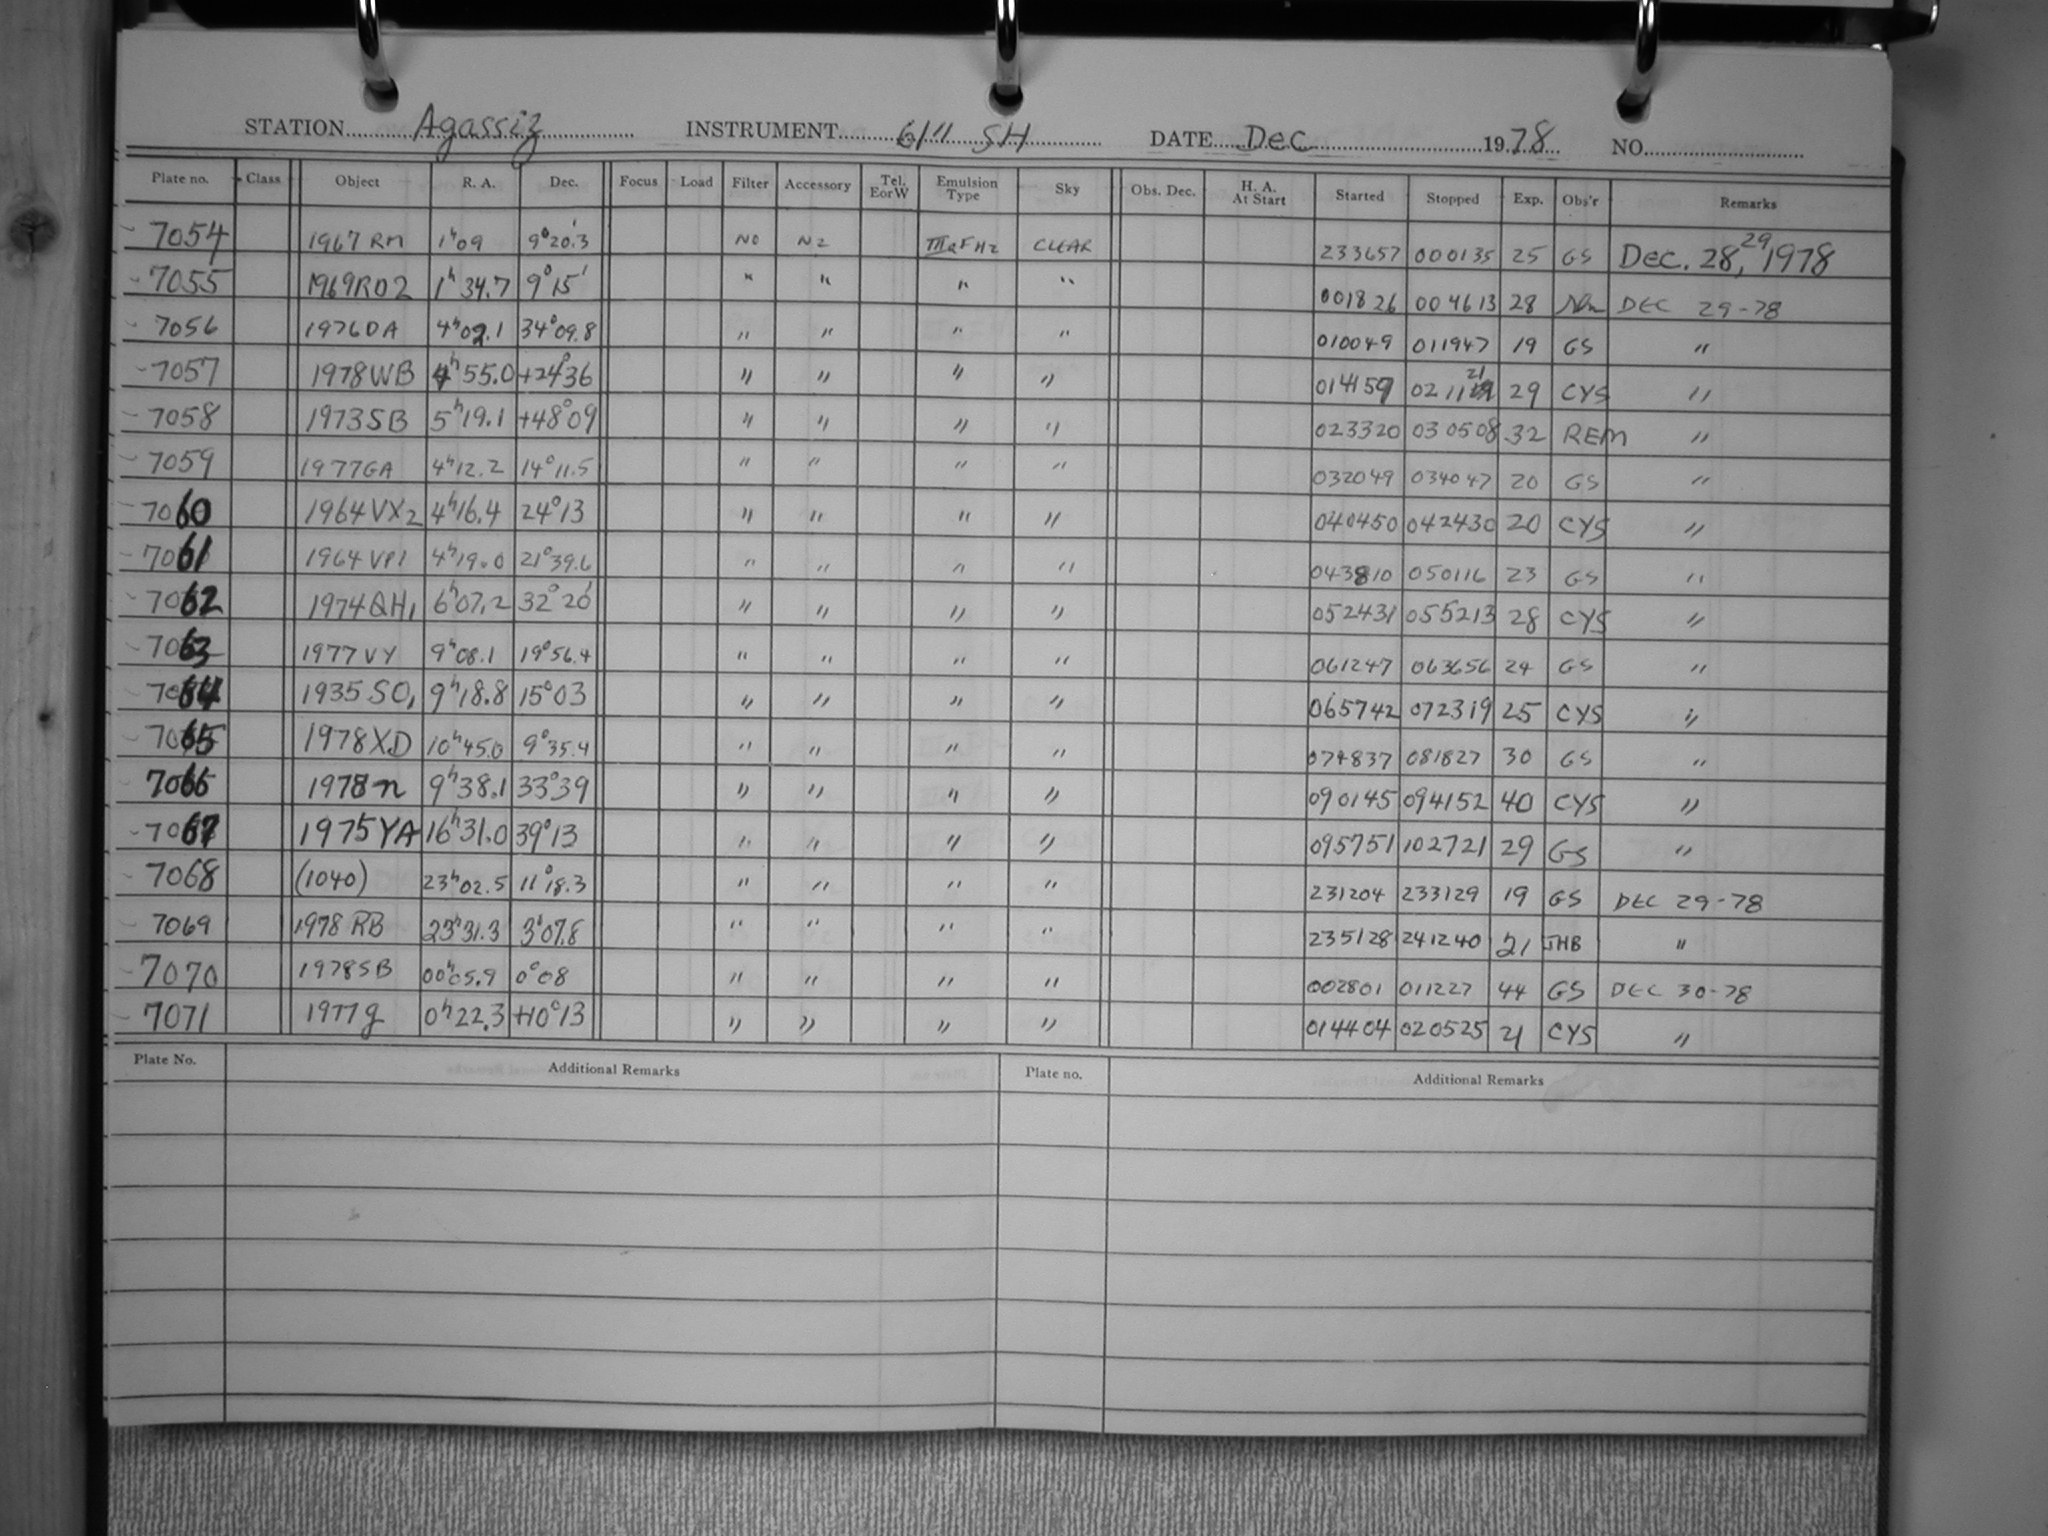 STATION Agassiz INSTRUMENT 61" SH DATE Dec 1978 NO.
Plate no. Class Object R. A. Dec. Focus Load Filter Accessory Tel. EorW Emulsion Type Sky Obs. Dec. H. A. At Start Started Stopped Exp. Obs'r Remarks
7054 1967 RM 1h09 9°20.'3 NO N2 IIIaF H2 CLEAR 233657 000135 25 GS Dec. 28,29 1978
7055 1969RO2 1h34.7 9°15' " " " " 001826 004613 28 DEC 29-78
7056 1976DA 4h02.1 34°09.8 " " " " 010049 011947 19 GS "
7057 1978WB 4h55.0 +24°36 " " " " 014159 021121 29 CYS "
7058 1973SB 5h19.1 +48°09 " " " " 023320 030508 32 REM "
7059 1977GA 4h12.2 14°11.5 " " " " 032049 034047 20 GS "
7060 1964VX2 4h16.4 24°13 " " " " 040450 042430 20 CYS "
7061 1964 VP1 4h19.0 21°39.6 " " " " 043810 050116 23 GS "
7062 1974QH1 6h07.2 32°20' " " " " 052431 055213 28 CYS "
7063 1977 VY 9h08.1 19°56.4 " " " " 061247 063656 24 GS "
7064 1935 SO1 9h18.8 15°03 " " " " 065742 072319 25 CYS "
7065 1978XD 10h45.0 9°35.4 " " " " 074837 081827 30 GS "
7066 1978 n 9h38.1 33°39 " " " " 090145 094152 40 CYS "
7067 1975YA 16h31.0 39°13 " " " " 095751 102721 29 GS "
7068 (1040) 23h02.5 11°18.3 " " " " 231204 233129 19 GS DEC 29-78
7069 1978 RB 23h31.3 3°07.8 " " " " 235128 241240 21 JHB "
7070 1978SB 00h05.9 0°08 " " " " 002801 011227 44 GS DEC 30-78
7071 1977g 0h22.3 +10°13 " " " " 014404 020525 21 CYS "
Plate No. Additional Remarks Plate no. Additional Remarks